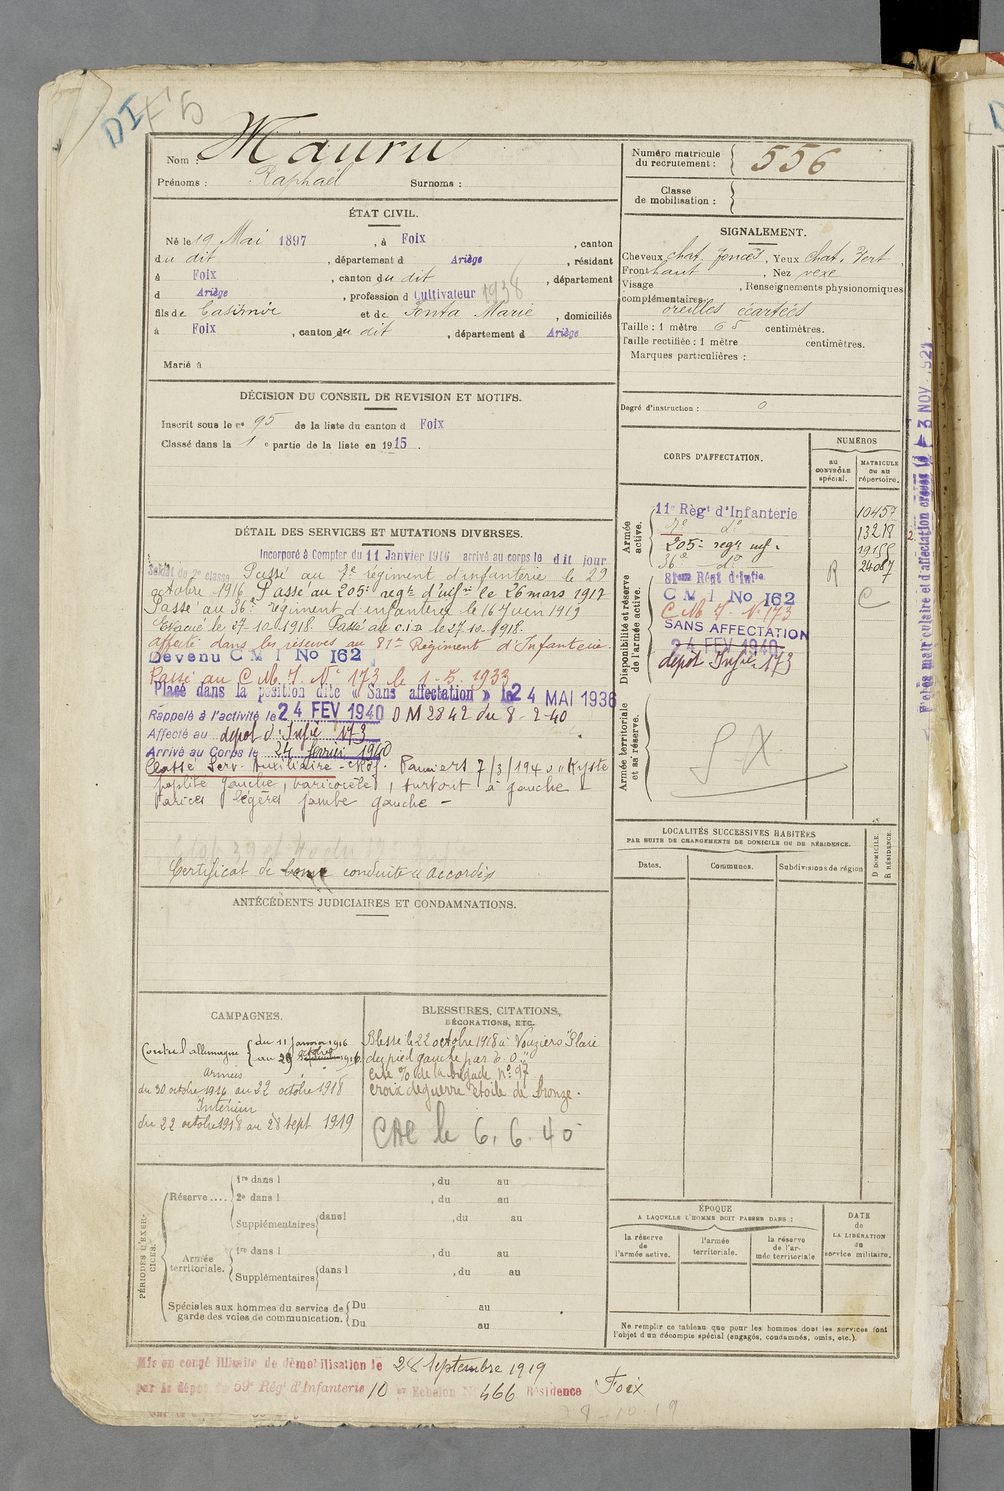 DI F5
Nom : Mauru
Prénoms : Raphaël Surnoms :
ÉTAT CIVIL.
Né le 19 Mai 1897, à Foix, canton
du dit, département d Ariège, résidant
à Foix, canton du dit, département
d Ariège, profession d Cultivateur 1938
fils de Casimir et de Fonta Marie, domiciliés
à Foix, canton du dit, département d Ariège
Marié à
DÉCISION DU CONSEIL DE REVISION ET MOTIFS.
Inscrit sous le no 95 de la liste du canton d Foix
Classé dans la 1 e partie de la liste en 1915.
DÉTAIL DES SERVICES ET MUTATIONS DIVERSES.
Incorporé à Compter du 11 Janvier 1916 arrivé au corps le dit jour
Soldat de 2e classe Passé au 7e régiment d'infanterie le 29
octobre 1916. Passé au 205e regt d'infie le 26 mars 1917
Passé au 36e régiment d'infanterie le 16 Juin 1919
Evacué le 27-10-1918. Passé au c.i.d le 27-10-1918.
affecté dans les réserves au 81e Régiment d'Infanterie.
Devenu C M I No 162
Passé au C. M. I. No 173 le 1-5-1933
Placé dans la position dite « Sans affectation » le 24 MAI 1936
Rappelé à l'activité le 24 FEV 1940 DM 2842 du 8-2-40
Affecté au dépôt d'Infie 173
Arrivé au Corps le 24 février 1940
Classé Serv. Auxiliaire - CRéf. Pamiers 7/3/1940 "Kyste
poplité gauche, varicocèle, surtout à gauche
varices légères jambe gauche -
Certificat de bonne conduite "Accordé"
ANTÉCÉDENTS JUDICIAIRES ET CONDAMNATIONS.
CAMPAGNES.
Contre l'allemagne { du 11 Janvier 1916
au 29 octobre 1916.
Armées
du 30 octobre 1916 au 22 octobre 1918
Intérieur
du 22 octobre 1918 au 28 Sept 1919
BLESSURES, CITATIONS,
DÉCORATIONS, ETC.
Blessé le 22 octobre 1918 à Vouziers "Plaie
du pied gauche par é. o."
Cité % de la brigade no 97
croix de guerre étoile de bronze.
CAL le 6.6.40
PÉRIODES D'EXERCICES.
Réserve .... 1re dans l , du au
2e dans l , du au
Supplémentaires { dans l , du au
Armée territoriale. 1re dans l , du au
Supplémentaires { dans l , du au
Spéciales aux hommes du service de garde des voies de communication. { Du au
Du au
Mis en congé illimité de démobilisation le 28 Septembre 1919
par le dépôt du 59e Régt d'Infanterie 10 e Echelon No 466 Résidence Foix
28-10-19
Numéro matricule du recrutement : 556
Classe de mobilisation :
SIGNALEMENT.
Cheveux chat. foncés, Yeux chat. Vert
Front haut, Nez vexe
Visage , Renseignements physionomiques
complémentaires :
oreilles écartées
Taille : 1 mètre 65 centimètres.
Taille rectifiée : 1 mètre centimètres.
Marques particulières :
Degré d'instruction : 0
CORPS D'AFFECTATION.
NUMÉROS
au CONTRÔLE spécial.
MATRICULE ou au répertoire.
Armée active.
11e Régt d'Infanterie 10457
7e do
205e regt inf.
36e do 24087
Disponibilité et réserve de l'armée active.
81eme Régt d'Infie R
C M I No 162 C
C. M. I. No 173
SANS AFFECTATION
24 FEV 1940
dépôt Infie 173
Armée territoriale et sa réserve.
SX
LOCALITÉS SUCCESSIVES HABITÉES
PAR SUITE DE CHANGEMENTS DE DOMICILE OU DE RÉSIDENCE.
Dates. Communes. Subdivisions de région
D DOMICILE. R RÉSIDENCE.
ÉPOQUE
A LAQUELLE L'HOMME DOIT PASSER DANS :
la réserve de l'armée active. l'armée territoriale. la réserve de l'armée territoriale
DATE de LA LIBÉRATION du service militaire.
Ne remplir ce tableau que pour les hommes dont les services font
l'objet d'un décompte spécial (engagés, condamnés, omis, etc.).
Fiches matriculaire et d'affectation 3 NOV 1921